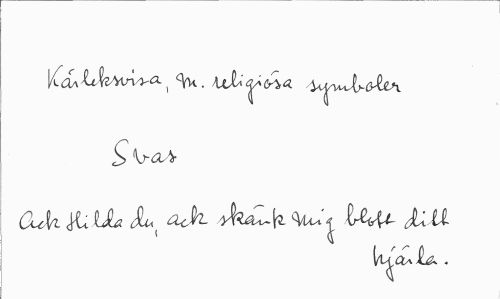 Kärleksvisa, m. religiösa symboler
Svas
Ack Hilda du, ack skänk mig blott ditt
hjärta.